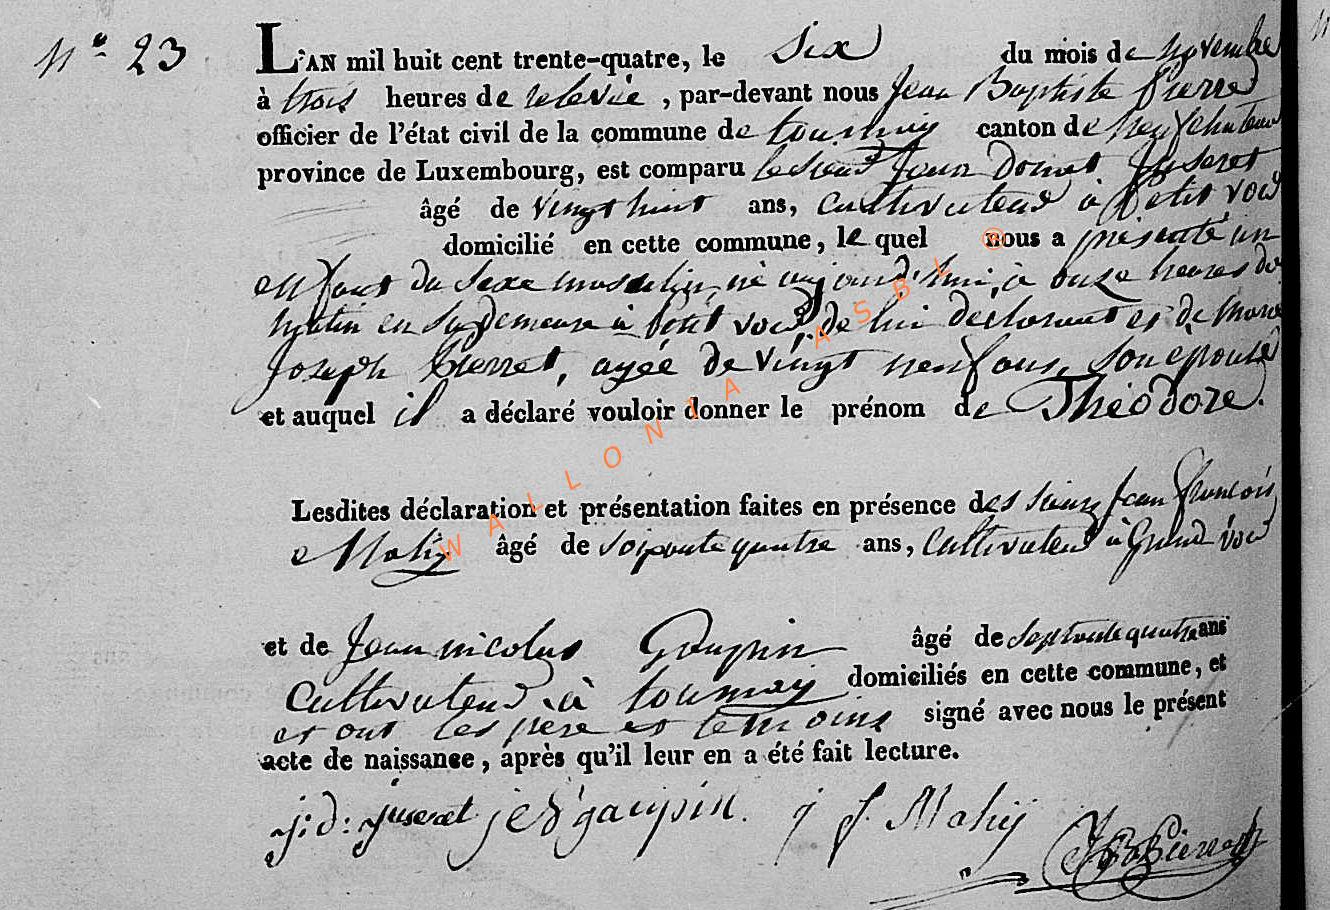 N° 23
L'AN mil huit cent trente-quatre, le Six du mois de novembre
à trois heures de relevée, par-devant nous Jean Baptiste Pierret
officier de l'état civil de la commune de tournay canton de neufchateau
province de Luxembourg, est comparu le sieur Jean Donat Juseret
âgé de vingt huit ans, cultivateur à petit voir
domicilié en cette commune, le quel nous a présenté un
enfant du sexe masculin, né aujourd'hui, à onze heures du
matin en sa demeure à petit voir, de lui déclarant et de Marie
Joseph Pierret, agée de vingt neuf ans, son epouse
et auquel il a déclaré vouloir donner le prénom de Théodore.
Lesdites déclaration et présentation faites en présence des sieurs Jean françois
Mahy âgé de soixante quatre ans, cultivateur à Grand voir
et de Jean nicolas Goupin âgé de septante quatre ans
cultivateur à tournay domiciliés en cette commune, et
et ont les père et temoins signé avec nous le présent
acte de naissance, après qu'il leur en a été fait lecture.
j: d: juseret j goupin. j f. Mahy
JB Pierret
WALLONIA ASBL ®